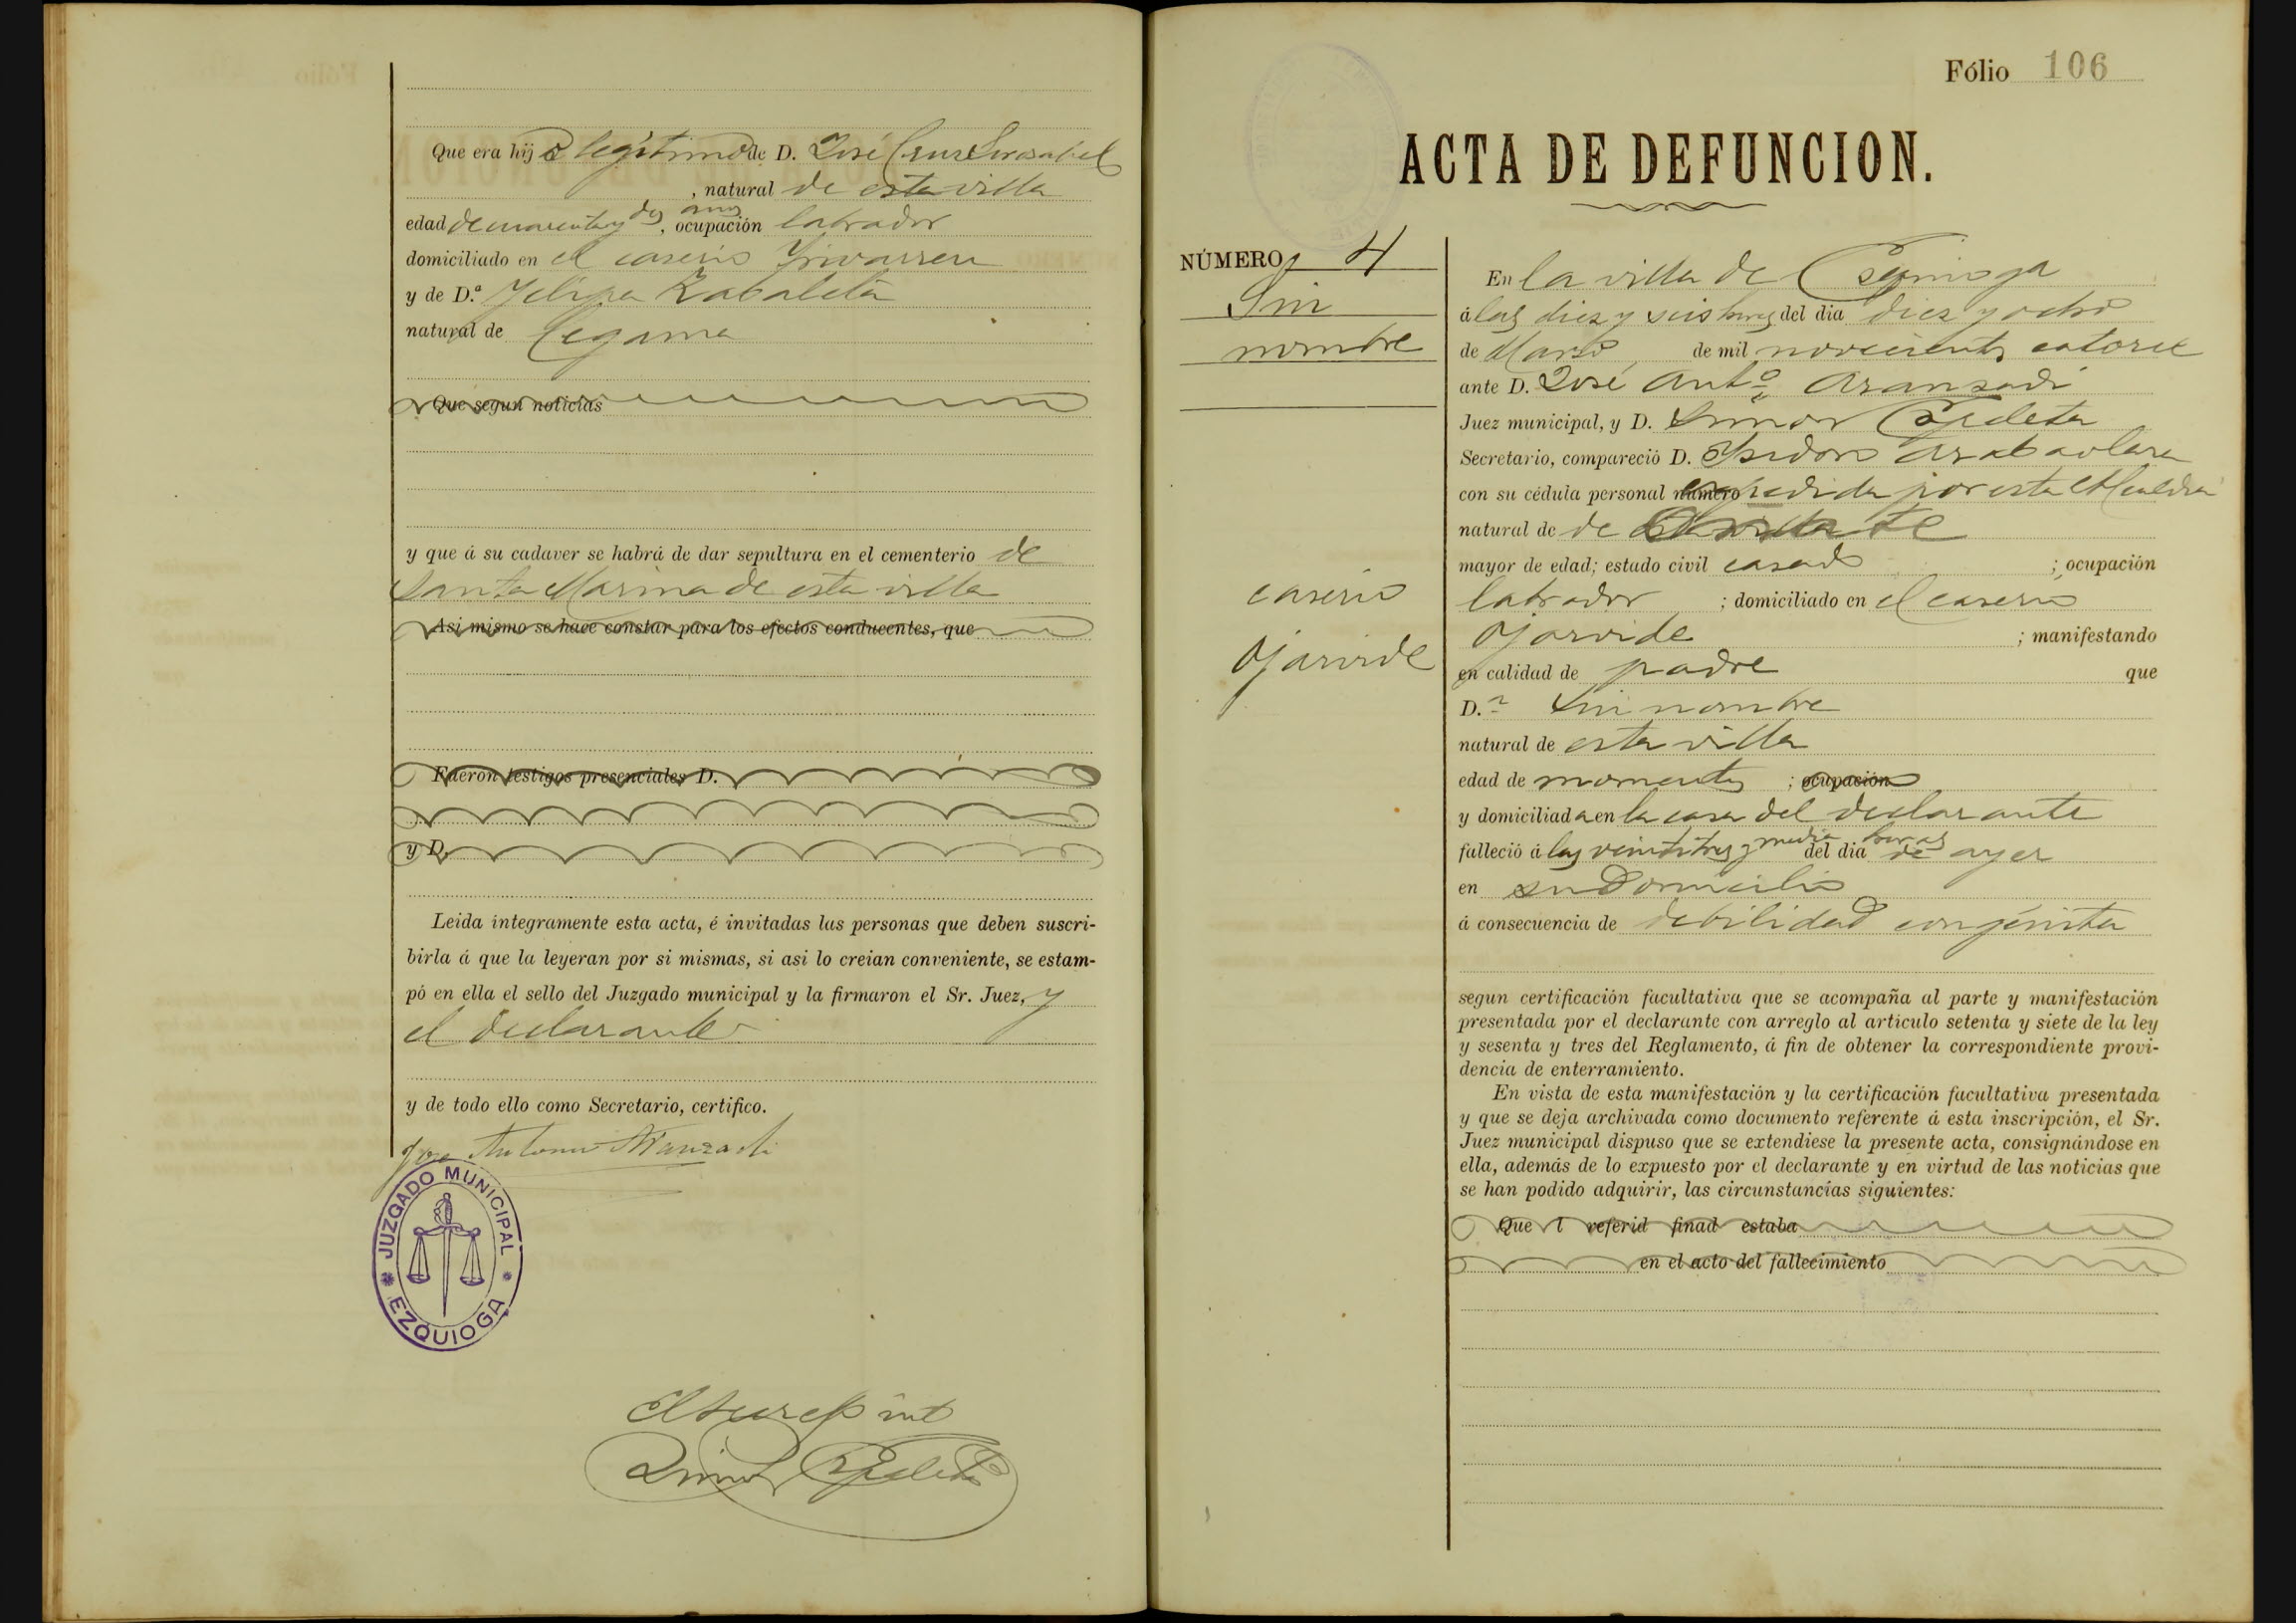 Que era hijo legítimo de D. José Cruz Sorasabel
, natural de esta villa
edad de cuarenta y dos años, ocupación labrador
domiciliado en el caserío
y de D.ª Felipa Zabaleta
natural de Cegama
Que segun noticias
y que á su cadaver se habrá de dar sepultura en el cementerio de
Santa Marina de esta villa
Asi mismo se hace constar para los efectos conducentes, que
Fueron testigos presenciales D.
y D.
Leida íntegramente esta acta, é invitadas las personas que deben suscri-
birla á que la leyeran por si mismas, si asi lo creian conveniente, se estam-
pó en ella el sello del Juzgado municipal y la firmaron el Sr. Juez, y
el declarante
y de todo ello como Secretario, certifico.
Jose Antonio Aranzadi
JUZGADO MUNICIPAL
EZQUIOGA
Simon
Fólio 106
ACTA DE DEFUNCION.
NÚMERO 4
Sin
nombre
caserio
Ojarvide
En la villa de Ezquioga
á las diez y seis horas del dia diez y ocho
de Marzo de mil novecientos catorce
ante D. José Antº Aranzadi
Juez municipal, y D. Simon Ezpeleta
Secretario, compareció D. Isidoro
con su cédula personal número expedida por esta Alcaldia
natural de de
mayor de edad; estado civil casado ; ocupación
labrador ; domiciliado en el caserio
Ojarvide ; manifestando
en calidad de padre que
D.ª Sin nombre
natural de esta villa
edad de momentos ; ocupación
y domiciliada en la casa del declarante
falleció á las veintitres y media horas del dia de ayer
en su domicilio
á consecuencia de debilidad congénita
segun certificación facultativa que se acompaña al parte y manifestación
presentada por el declarante con arreglo al artículo setenta y siete de la ley
y sesenta y tres del Reglamento, á fin de obtener la correspondiente provi-
dencia de enterramiento.
En vista de esta manifestación y la certificación facultativa presentada
y que se deja archivada como documento referente á esta inscripción, el Sr.
Juez municipal dispuso que se extendiese la presente acta, consignándose en
ella, además de lo expuesto por el declarante y en virtud de las noticias que
se han podido adquirir, las circunstancias siguientes:
Que l referid finad estaba
en el acto del fallecimiento